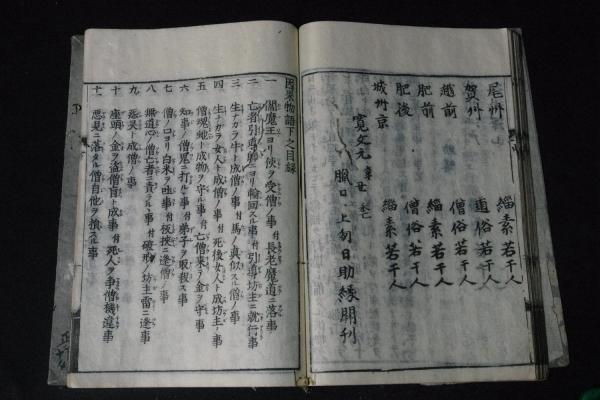 尾州
賀州
越前
肥前
肥後
城州京
緇素若干人
道俗若干人
僧俗若干人
緇素若干人
僧俗若干人
緇素若干人
寛文元辛丑
臘月上旬日助縁開刊
因果物語下之目録
一 閻魔王ヨリ使ヲ受僧ノ事 付 長老魔道ニ落事
二 亡者引導師ニヨリ輪回スル事 付 引導坊主ニ就行事
三 生ナガラ牛ト成僧ノ事 付 馬ノ真似スル僧ノ事
四 生ナガラ女人ト成僧ノ事 付 死後女人ト成坊主ノ事
五 僧現蛇ト成物ヲ守ル事 付 亡僧来テ金ヲ守事
六 知事ノ僧鬼ニ打ルヽ事 付 弟子ヲ取殺ス事
七 僧ノ口ヨリ白米ヲ吐事 付 板挟ニ逢僧ノ事
八 無道心ノ僧亡者ニ責ラルヽ事 付 破戒ノ坊主雷ニ逢事
九 悪霊ト成僧ノ事
十 座頭ノ金ヲ盗僧盲ト成事 付 死人ヲ争僧機違事
十一 悪見ニ落タル僧自他ヲ損スル事